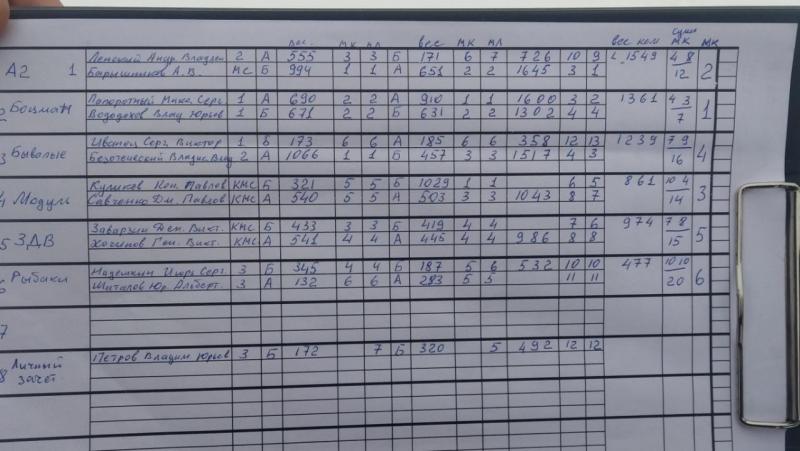 вес мк мл вес мк мл вес ком сум мк мк
А2 1 2 А 555 3 3 Б 171 6 7 726 10 9 1549 4 8 2
Барышников А.В. МС Б 994 1 1 А 651 2 2 1645 3 1 12
2 Боцман 1 А 690 2 2 А 910 1 1 1600 3 2 1361 4 3 1
1 Б 671 2 2 Б 631 2 2 1302 4 4 7
3 Бывалые Иванец Серг. Виктор 1 Б 173 6 6 А 185 6 6 358 12 13 1239 7 9 4
2 А 1066 1 1 Б 457 3 3 1517 4 3 16
4 Модуль Куликов Павлов КМС Б 321 5 5 Б 1029 1 1 6 5 861 10 4 3
Савченко Дм. Павлов КМС А 540 5 5 А 503 3 3 1043 8 7 14
5 ЗДВ Заварзин Ден. Викт. КМС Б 433 3 3 Б 419 4 4 7 6 974 7 8 5
Ген. Викт. КМС А 541 4 4 А 445 4 4 986 8 8 15
6 Рыбаки Надешкин Игорь Серг. 3 Б 345 4 4 Б 187 5 6 532 10 10 477 10 10 6
Шаталов Юр. Альберт. 3 А 132 6 6 А 293 5 5 11 11 20
7
8 Личный зачет Петров Владим Юрьев 3 Б 172 7 Б 320 5 492 12 12